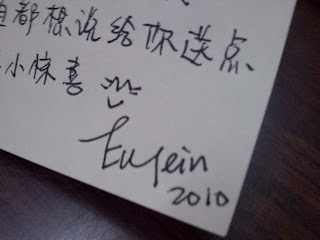 都想说给你送点
小惊喜
Eugein
2010